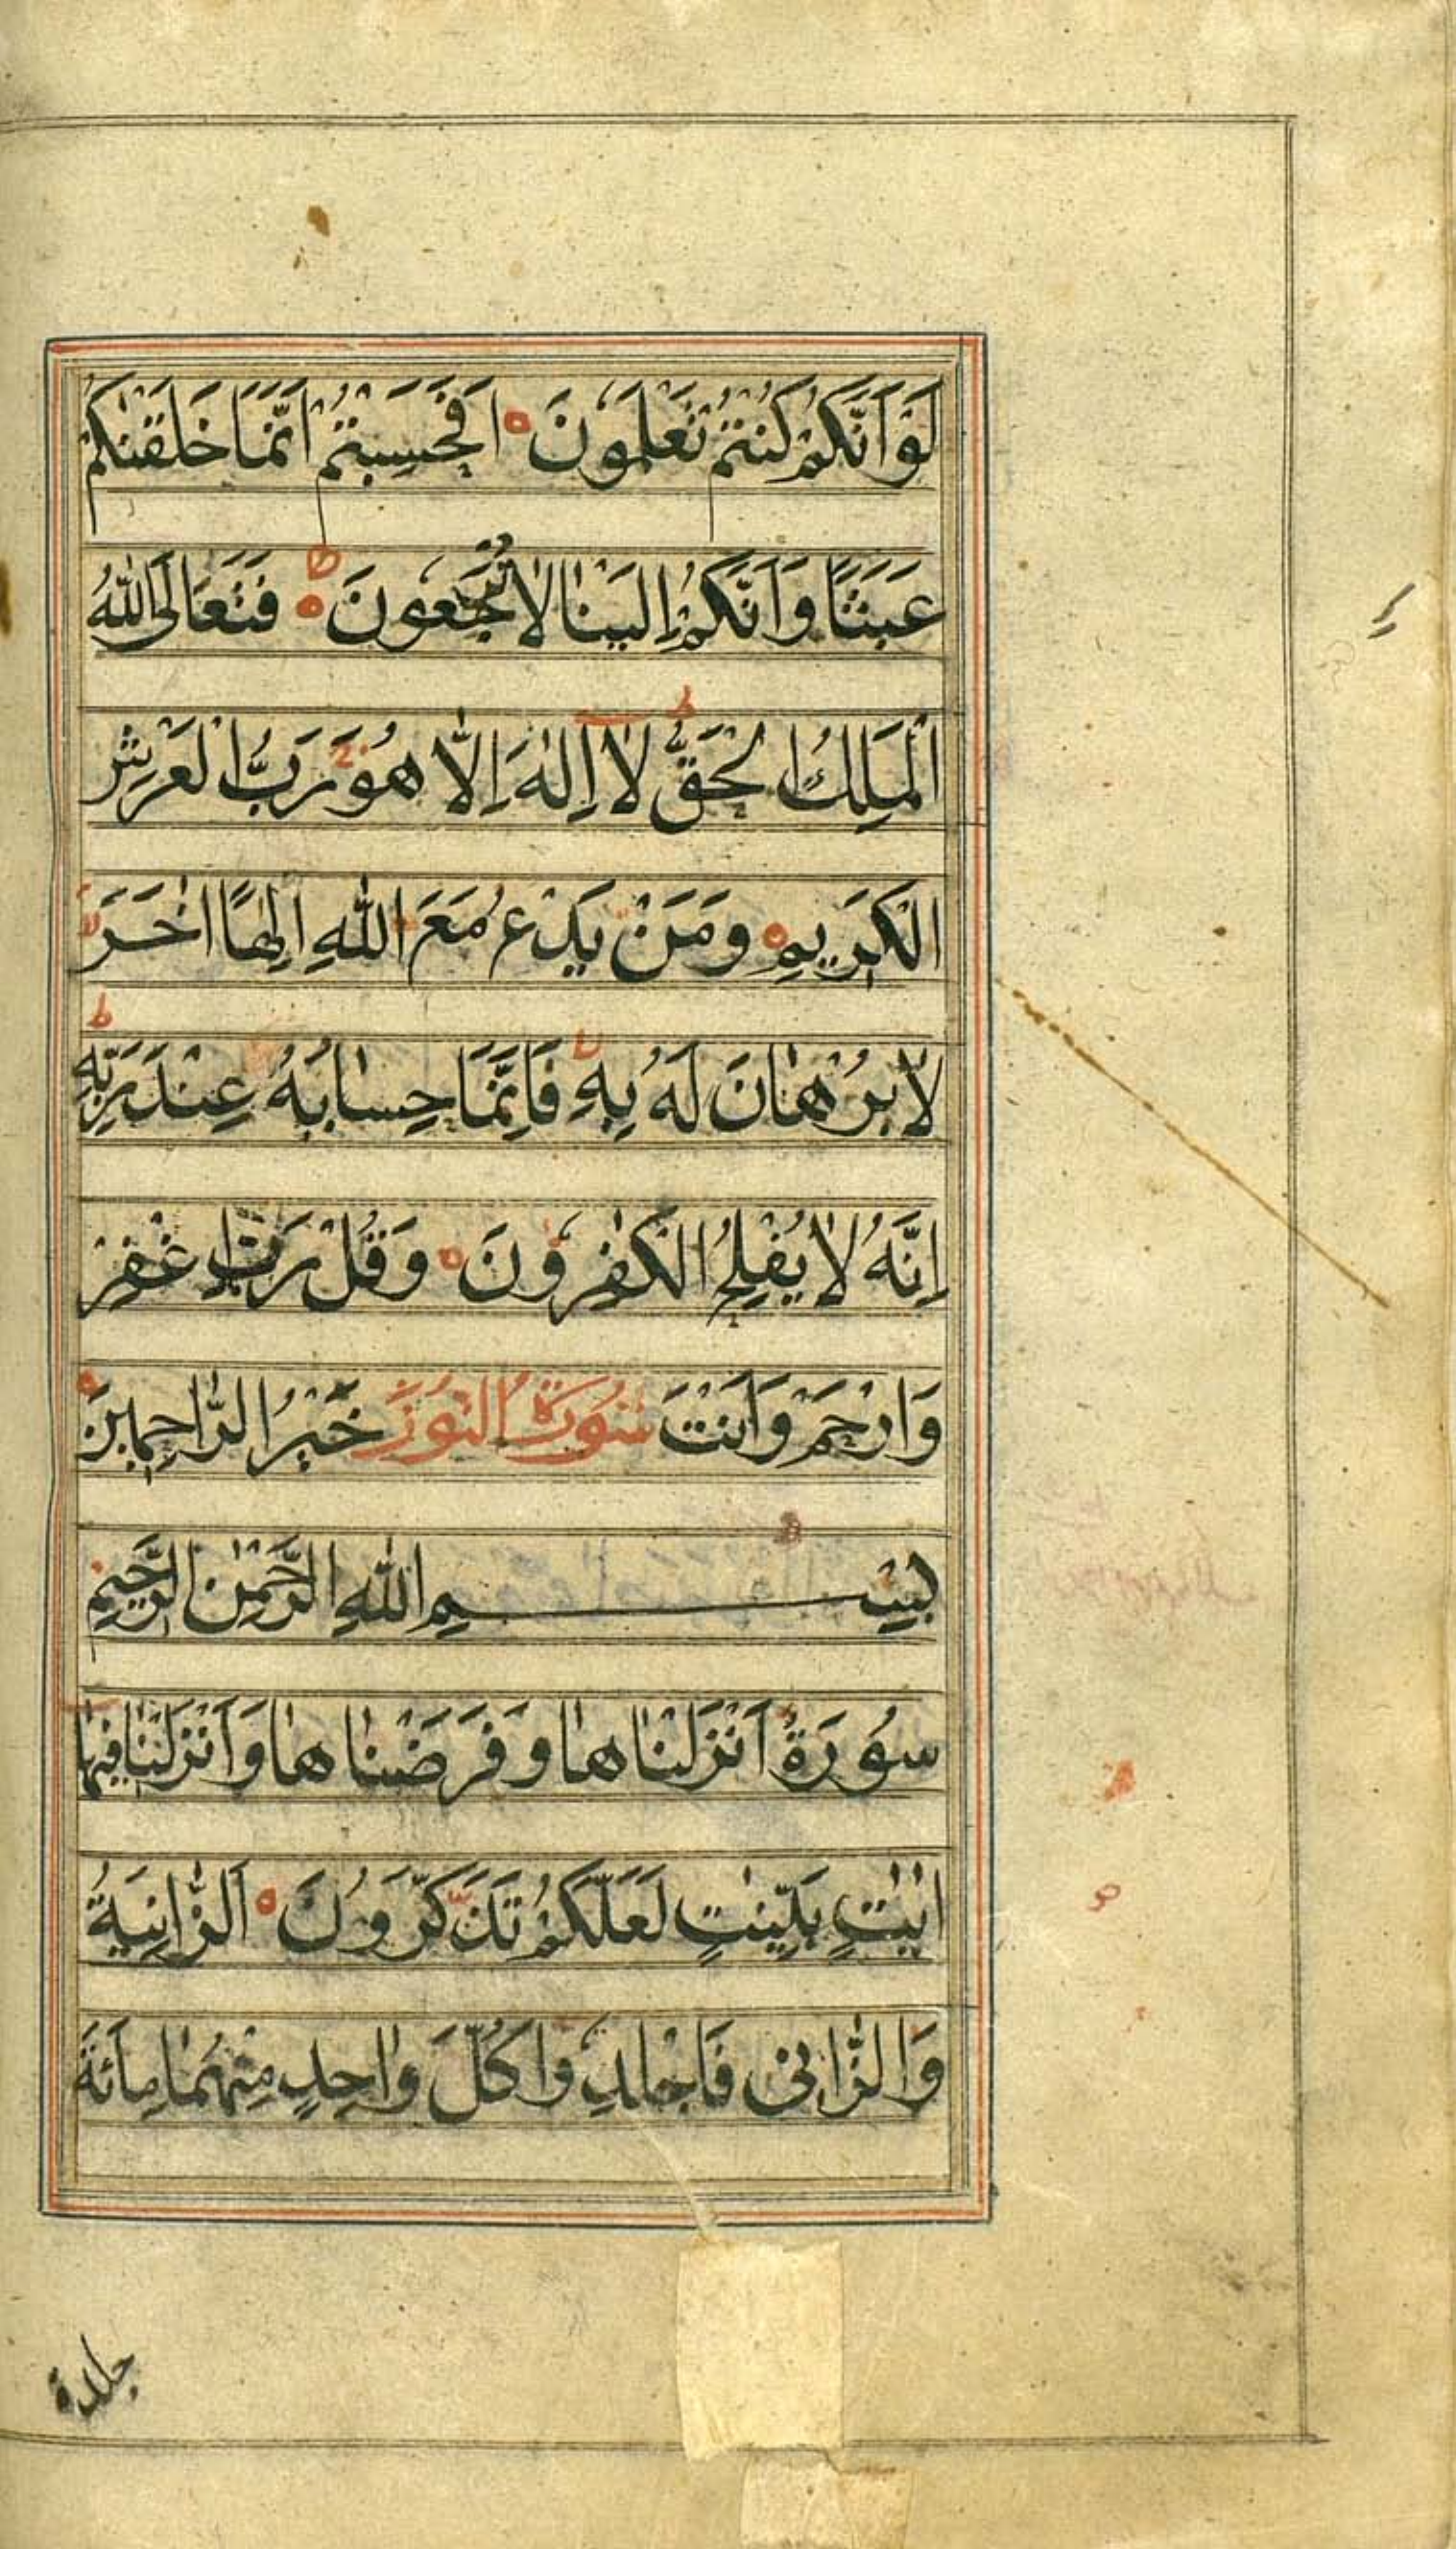 لَوْ اَنَّكُمْ كُنْتُمْ تَعْلَمُونَ ه اَفَحَسِبْتُمْ اَنَّمَا خَلَقْنٰكُمْ
عَبَثًا وَاَنَّكُمْ اِلَيْنٰا لاٰ تُرْجَعُونَ ه ط فَتَعَالَى اللّٰهُ
الْمَلِكُ الْحَقُّ ط لاٰ اِلٰهَ اِلّٰا هُوَ رَبُّ الْعَرْشِ
الْكَرِيمِ ه وَمَنْ يَدْعُ مَعَ اللّٰهِ اِلٰهًا اٰخَرَ لا
لاٰ بُرْهٰانَ لَهُ بِهِ لا فَاِنَّمَا حِسٰابُهُ عِنْدَ رَبِّهِ ط
اِنَّهُ لاٰ يُفْلِحُ الْكٰفِرُونَ ه وَقُلْ رَبِّ اغْفِرْ
وَارْحَمْ وَاَنْتَ سُورَةُ النُّورِ خَيْرُ الرّٰاحِمِينَ ه
بِسْمِ اللّٰهِ الرَّحْمٰنِ الرَّحِيمِ
سُورَةٌ اَنْزَلْنٰاهٰا وَفَرَضْنٰاهٰا وَاَنْزَلْنٰا فِيهٰا
اٰيٰتٍ بَيِّنٰتٍ لَعَلَّكُمْ تَذَكَّرُونَ ه اَلزّٰانِيَةُ
وَالزّٰانِى فَاجْلِدُوا كُلَّ وٰاحِدٍ مِنْهُمٰا مِائَةَ
جلدة